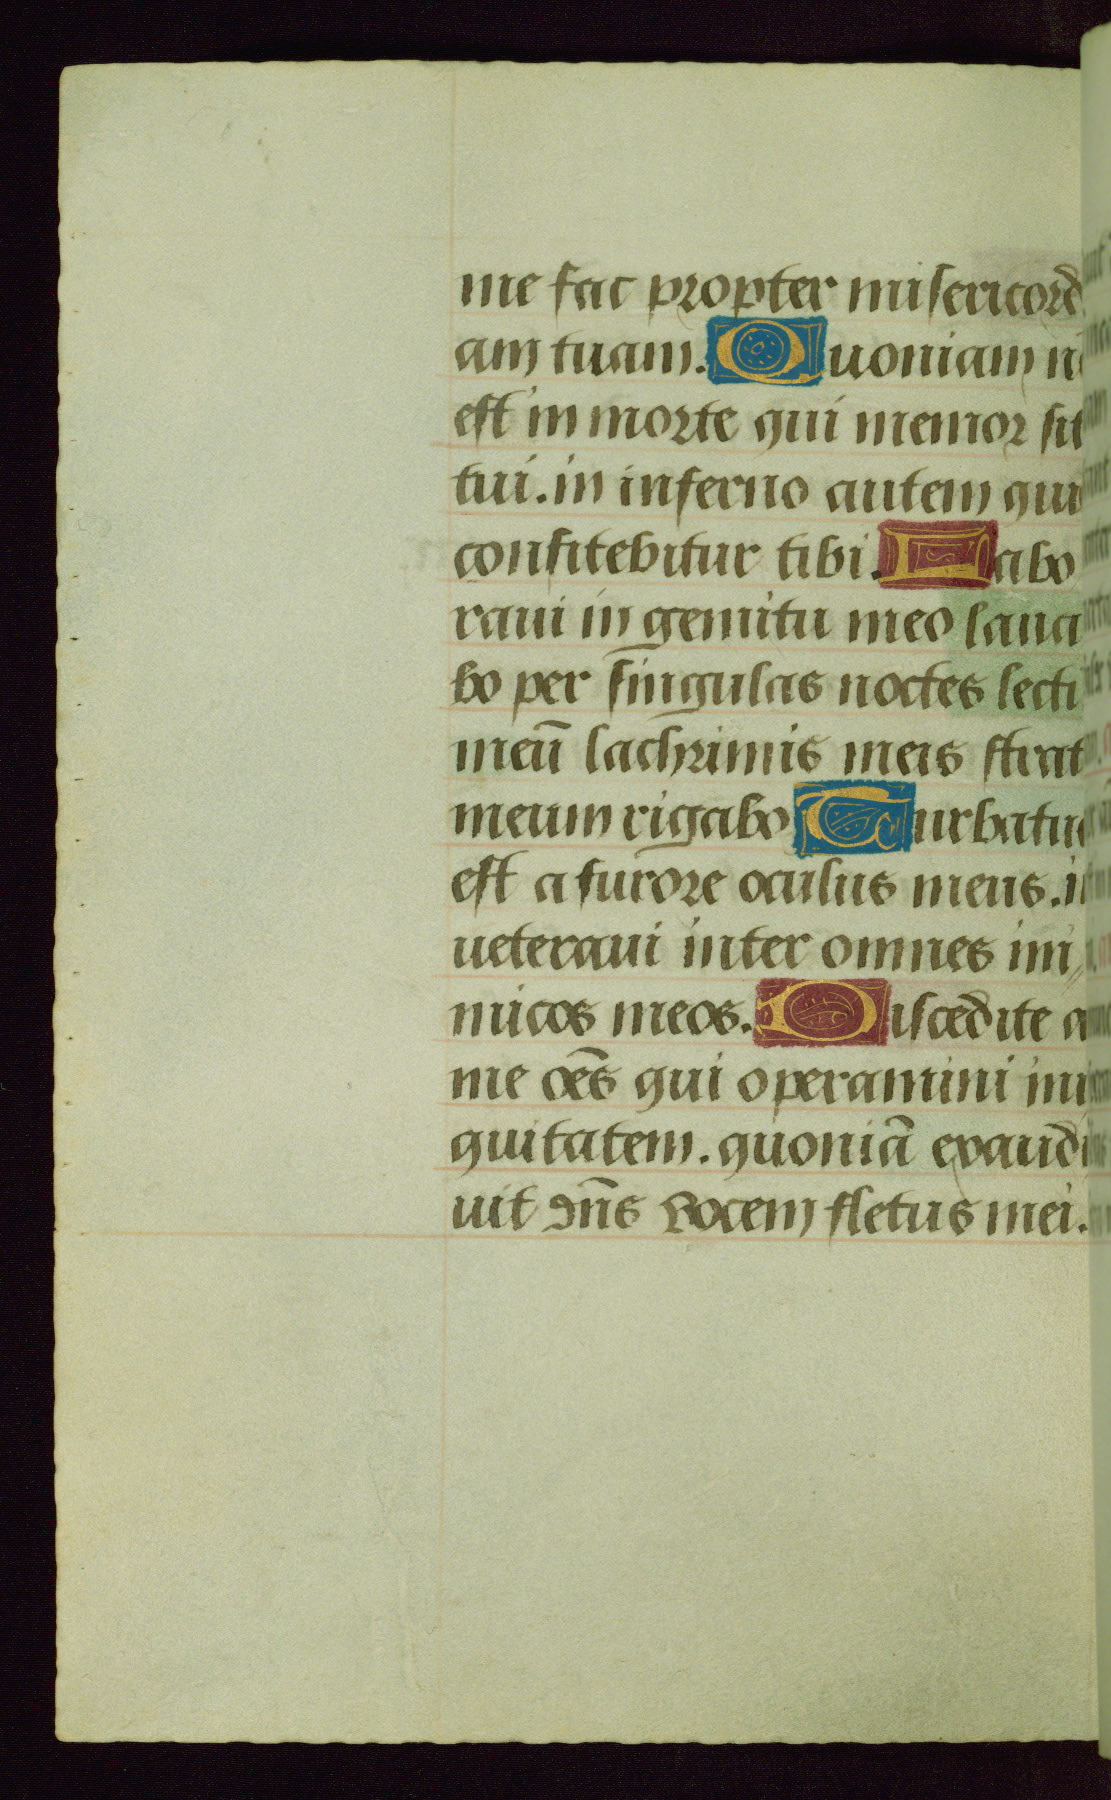 me fac propter misericord
am tuam. Quoniam n
est in morte qui memor sit
tui. in inferno autem qui
confitebitur tibi. Labo
raui in gemitu meo laua
bo per singulas noctes lectū
meū lachrimis meis strat
meum rigabo Turbatus
est a furore oculus meus. in
ueteraui inter omnes ini
micos meos. Discedite a
me oēs qui operamini ini
quitatem. quoniā exaudi
uit dñs vocem fletus mei.